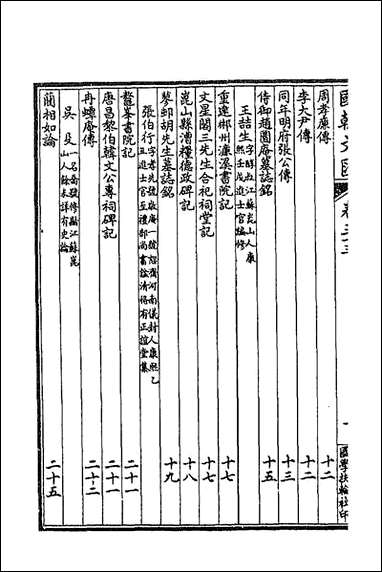 國朝文匯 卷三十三
周孝廉傳 十二
李大尹傳 十二
同年明府張公傳 十三
侍御趙園庵墓誌銘 十五
王喆生 字醇叔江蘇崑山人康熙壬戌進士官編修
重建郴州濂溪書院記 十七
文星閣三先生合祀祠堂記 十七
崑山縣漕糧德政碑記 十八
蓼邨胡先生墓誌銘 十九
張伯行 字孝先號敬庵一號恕齋河南儀封人康熙乙丑進士官至禮部尚書諡清恪有正誼堂集
鼇峯書院記 二十一
唐昌黎伯韓文公專祠碑記 二十一
冉蟫庵傳 二十二
吳殳 一名喬號修齡江蘇崑山人餘未詳有史論
藺相如論 二十五
國學扶輪社印